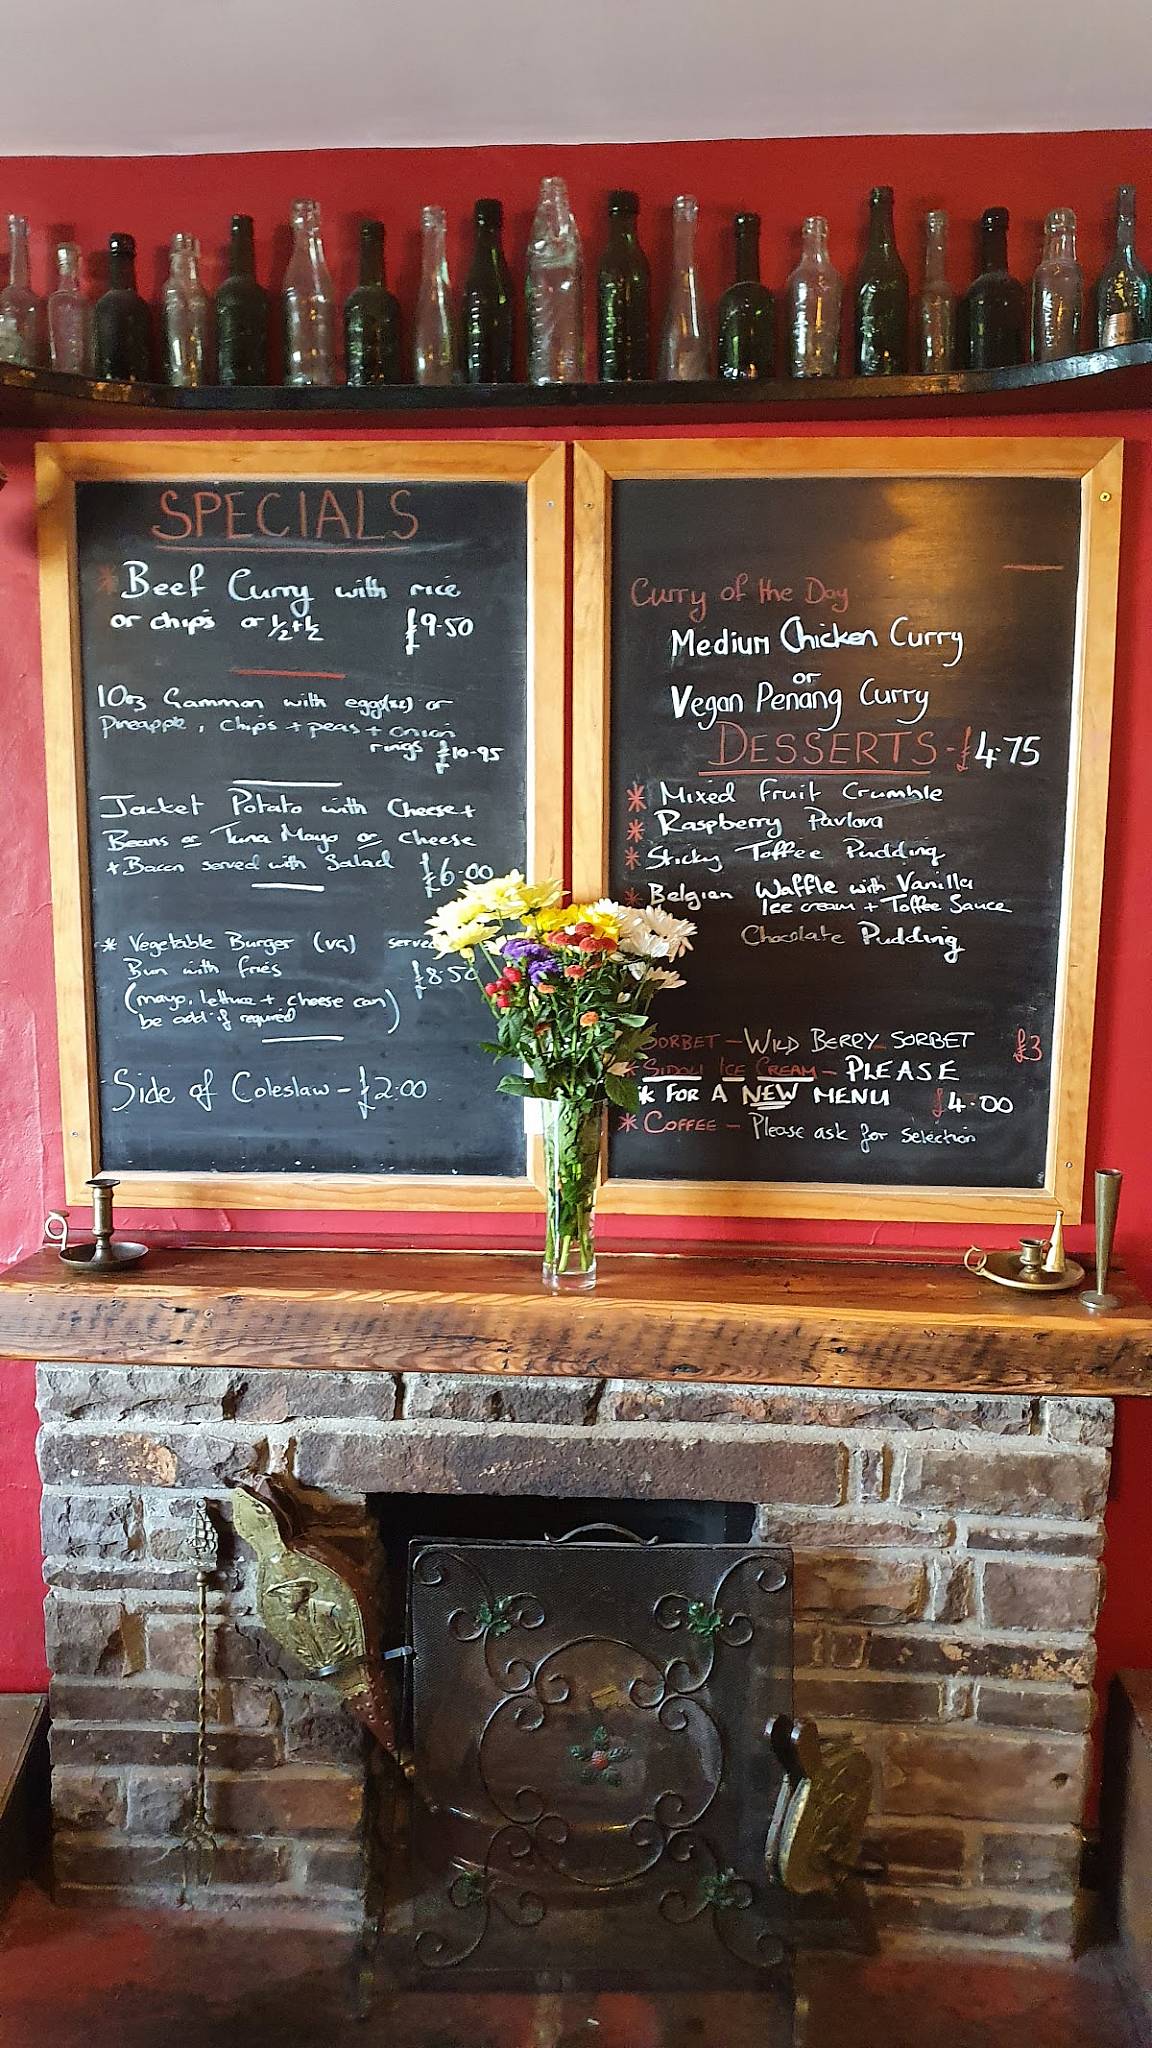 SPECIALS
* Beef Curry with rice
or chips or 1/2 + 1/2 £9.50
10oz Gammon with eggs(x2) or
Pineapple, chips + peas + onion
rings £10.95
Jacket Potato with Cheese +
Beans or Tuna Mayo or Cheese
+ Bacon served with Salad £6.00
* Vegetable Burger (VG) serve
Bun with fries £8.50
(mayo, lettuce + cheese can
be add if required)
Side of Coleslaw - £2.00
Curry of the Day
Medium Chicken Curry
or
Vegan Penang Curry
DESSERTS - £4.75
* Mixed Fruit Crumble
* Raspberry Pavlova
* Sticky Toffee Pudding
* Belgian Waffle with Vanilla
Ice cream + Toffee Sauce
Chocolate Pudding
SORBET - WILD BERRY SORBET £3
* SIDOLI ICE CREAM - PLEASE
k FOR A NEW MENU £4.00
* COFFEE - Please ask for selection